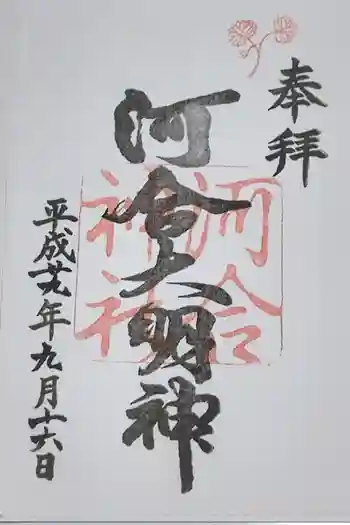 奉拝
河合大明神
河合神社
平成廿九年九月十六日